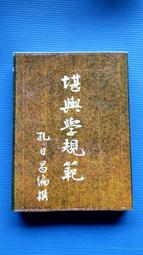 堪輿學規範
孔日昌編撰